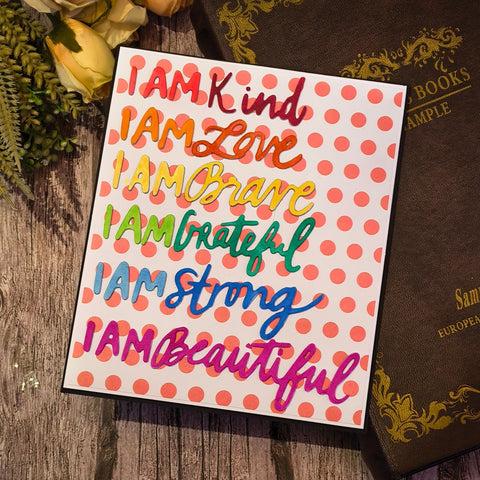 I AM Kind
I AM Love
I AM Brave
I AM Grateful
I AM Strong
I AM Beautiful
BOOKS
AMPLE
Sam
EUROPEA